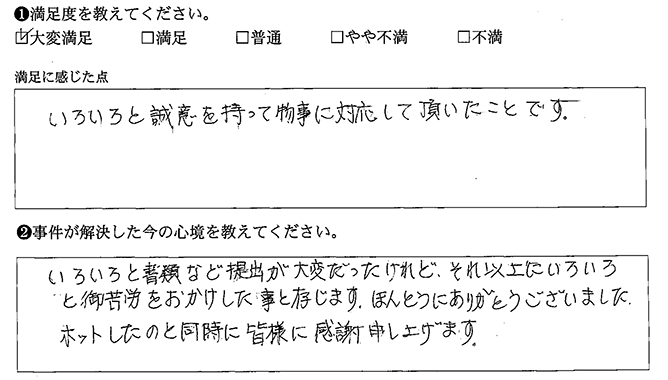 ❶満足度を教えてください。
☑大変満足 □満足 □普通 □やや不満 □不満
満足に感じた点
いろいろと誠意を持って物事に対応して頂いたことです。
❷事件が解決した今の心境を教えてください。
いろいろと書類など提出が大変だったけれど、それ以上にいろいろ
と御苦労をおかけした事と存じます。ほんとうにありがとうございました。
ホットしたのと同時に皆様に感謝申し上げます。